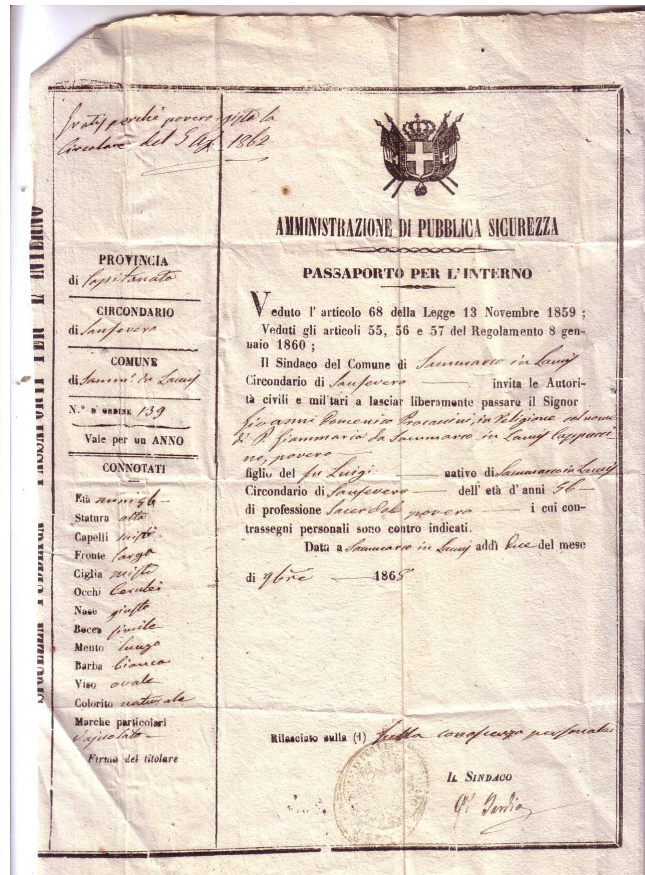 Gratis perchè povero giusta la
Circolare del 5 Ag. 1862
AMMINISTRAZIONE DI PUBBLICA SICUREZZA
PASSAPORTO PER L'INTERNO
PROVINCIA
di Capitanata
CIRCONDARIO
di Sansevero
COMUNE
di Samm. in Lamis
N.° D'ORDINE 139
Vale per un ANNO
CONNOTATI
Età anni 56
Statura alta
Capelli misti
Fronte larga
Ciglia miste
Occhi Cerulei
Naso giusto
Bocca simile
Mento lungo
Barba bianca
Viso ovale
Colorito naturale
Marche particolari
Firma del titolare
Veduto l'articolo 68 della Legge 13 Novembre 1859 ;
Veduti gli articoli 55, 56 e 57 del Regolamento 8 gen-
naio 1860 ;
Il Sindaco del Comune di Sammarco in Lamis
Circondario di Sansevero invita le Autori-
tà civili e militari a lasciar liberamente passare il Signor
Giovanni Domenico Procaccini, in Religione col nome
di P. Giammaria da Sammarco in Lamis Cappucci
no, povero
figlio del fu Luigi nativo di Sammarco in Lamis
Circondario di Sansevero dell'età d'anni 56
di professione Sacerdote povero i cui con-
trassegni personali sono contro indicati.
Data a Sammarco in Lamis addì Due del mese
di 9bre 1865
Rilasciato sulla (1) conoscenza personale
IL SINDACO